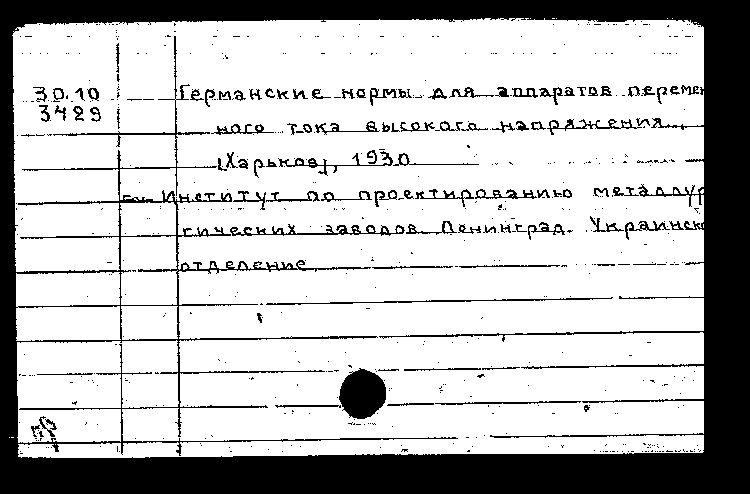 30.10
3429
Германские нормы для аппаратов перемен
ного тока высокого напряжения..,
[Харьков], 1930.
см. Институт по проектированию металлур
гических заводов. Ленинград. Украинско
отделение